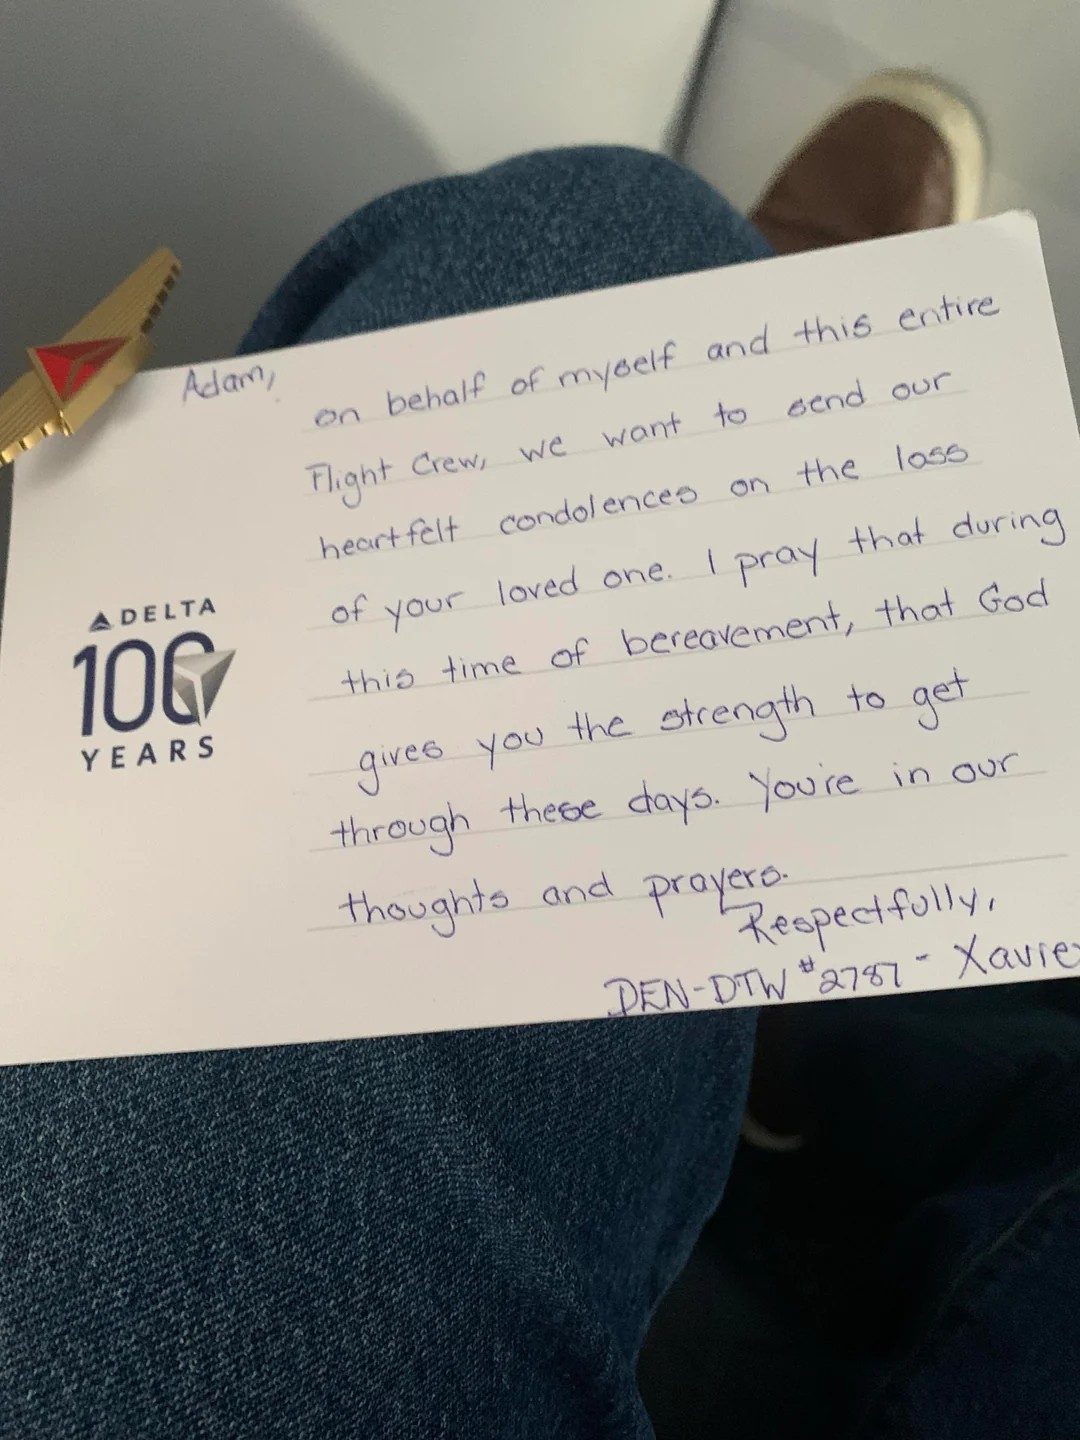 Adam,
on behalf of myself and this entire
Flight Crew, we want to send our
heartfelt condolences on the loss
of your loved one. I pray that during
this time of bereavement, that God
gives you the strength to get
through these days. You're in our
thoughts and prayers.
Respectfully,
DEN-DTW #2787 - Xavie
DELTA
100
YEARS